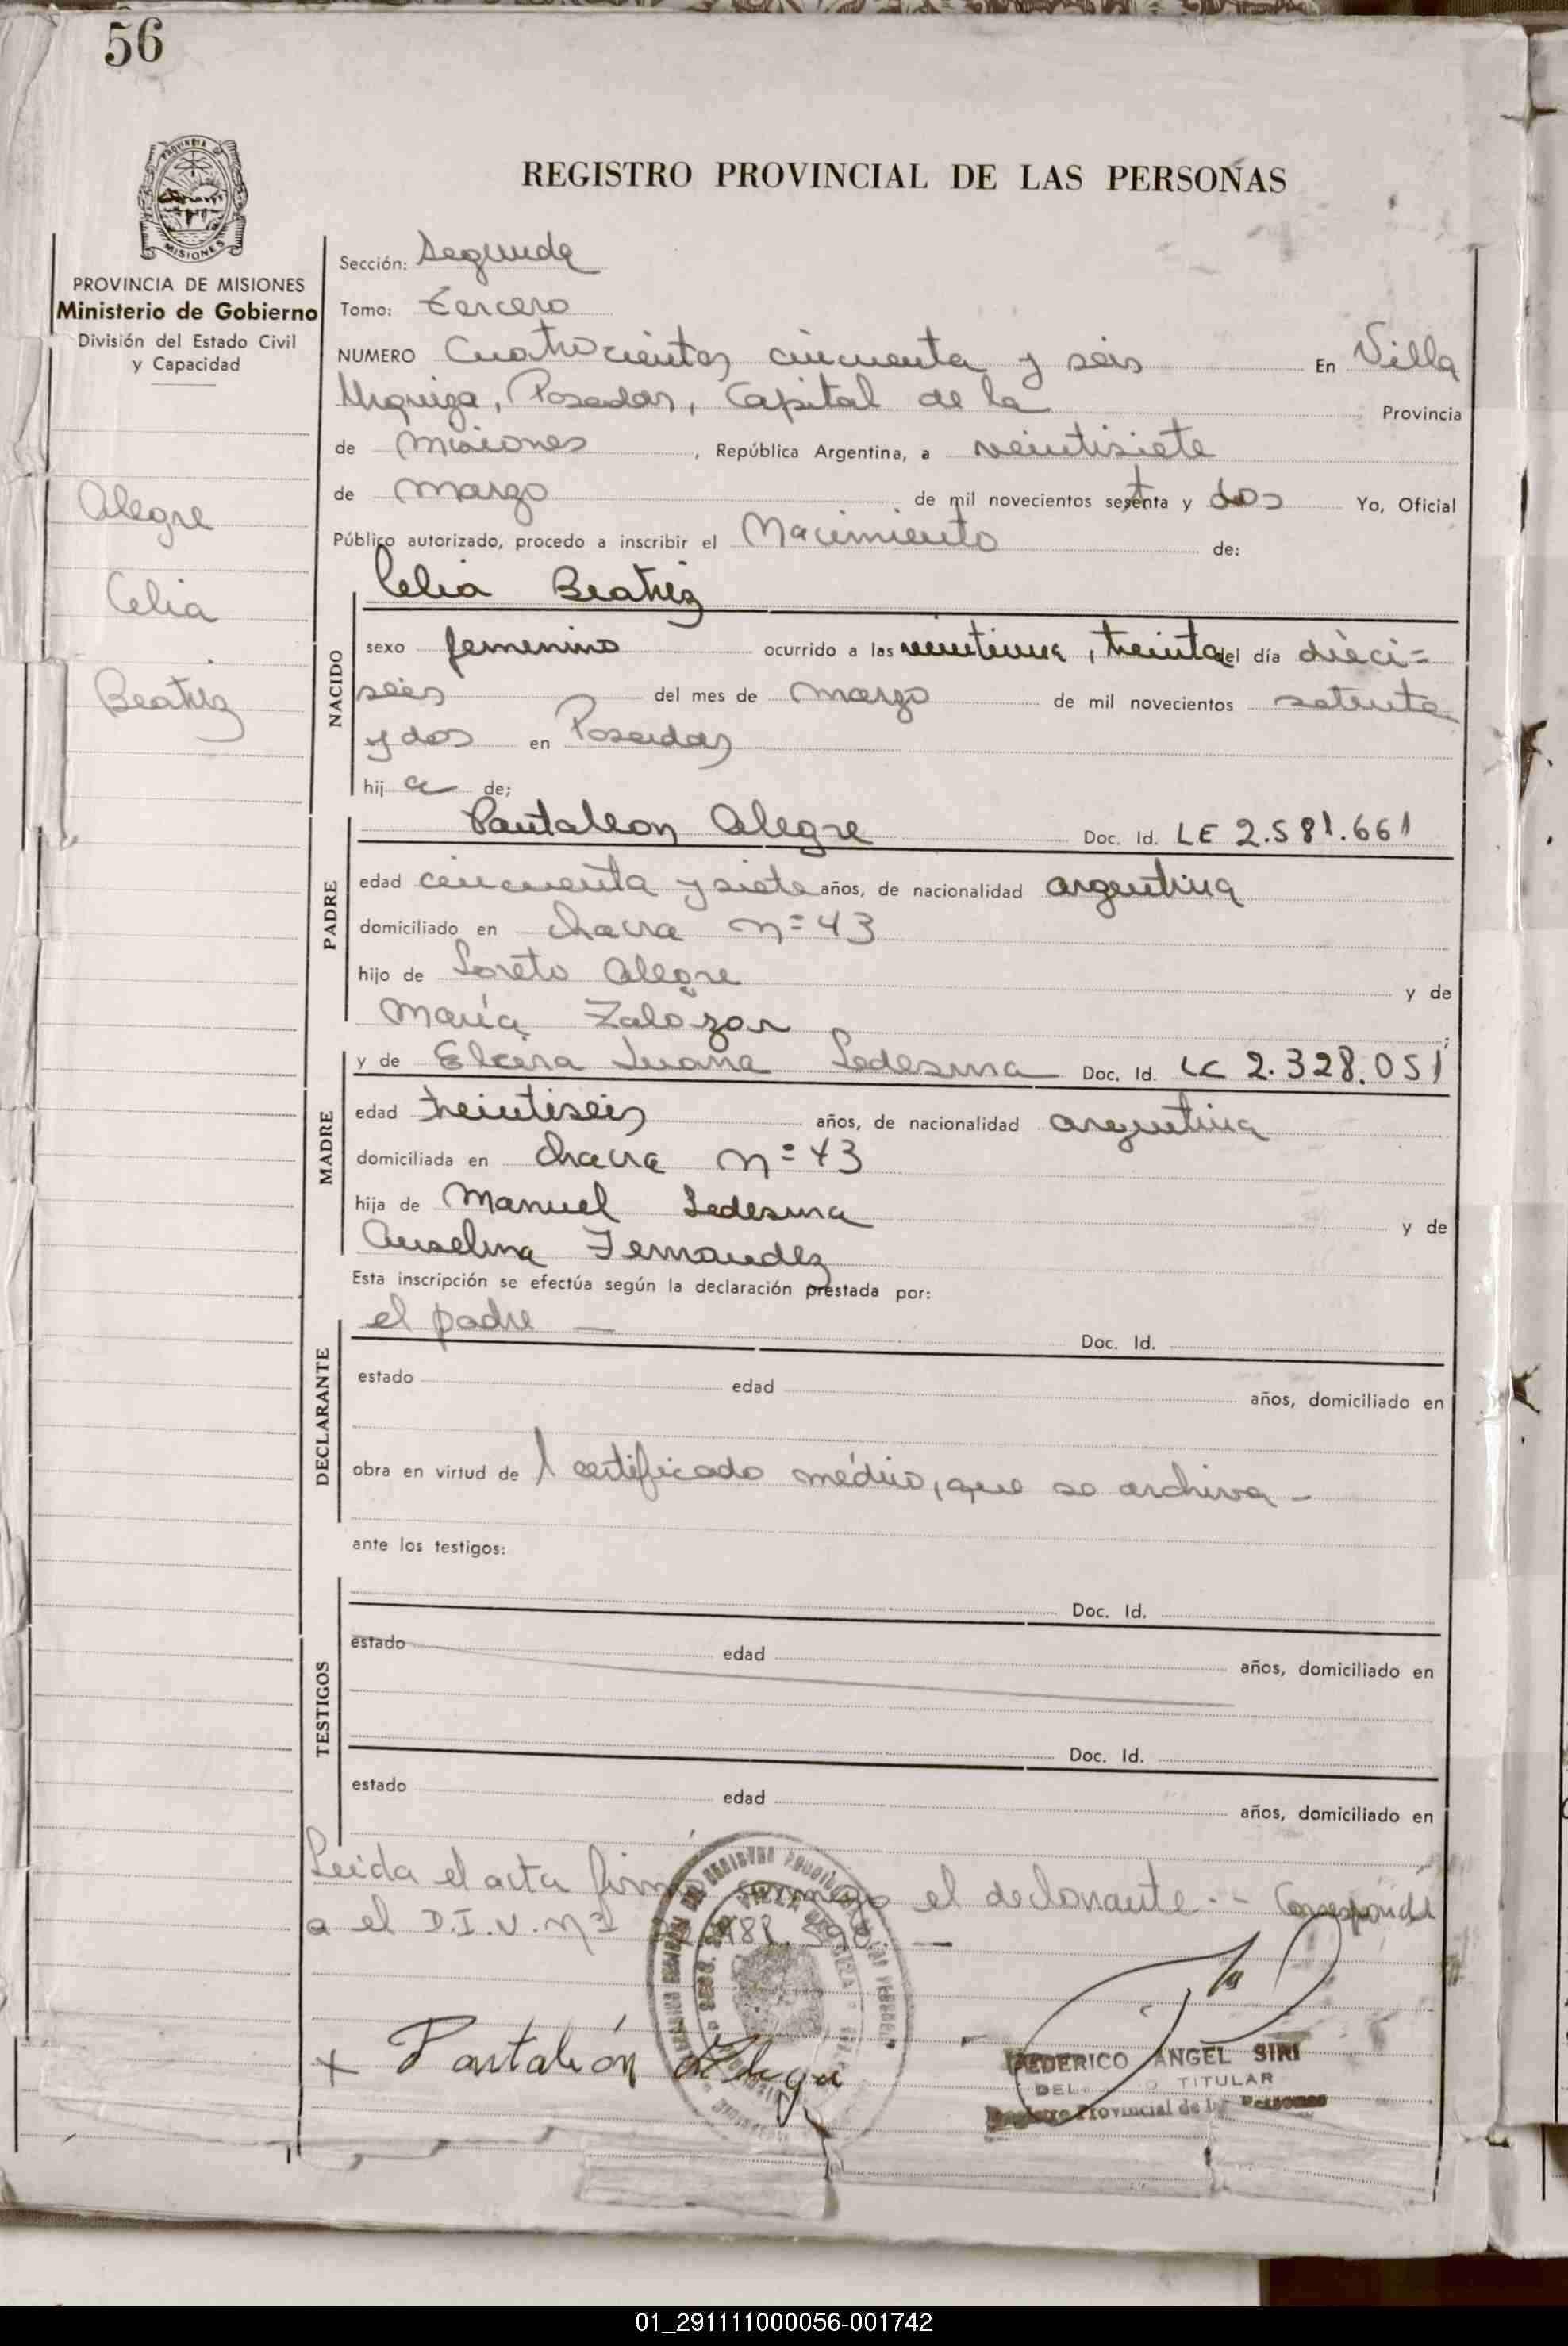 56
REGISTRO PROVINCIAL DE LAS PERSONAS
PROVINCIA DE MISIONES
Ministerio de Gobierno
División del Estado Civil
y Capacidad
Alegre
Celia
Beatriz
Sección: Segunda
Tomo: tercero
NUMERO Cuatrocientos cincuenta y seis En Villa
Urquiza, Posadas, Capital de la Provincia
de Misiones, República Argentina, a veintisiete
de marzo de mil novecientos setenta y dos Yo, Oficial
Público autorizado, procedo a inscribir el Nacimiento de:
Celia Beatriz
NACIDO
sexo femenino ocurrido a las veintiuna, treinta del día dieci=
seis del mes de marzo de mil novecientos setenta
y dos en Posadas
hij a de;
PADRE
Pantaleon Alegre Doc. Id. LE 2.581.661
edad cincuenta y siete años, de nacionalidad argentina
domiciliado en chacra nº 43
hijo de Loreto Alegre y de
María Zalazar
MADRE
y de Elcira Juana Ledesma Doc. Id. LC 2.328.051
edad treintiseis años, de nacionalidad argentina
domiciliada en chacra nº 43
hija de Manuel Ledesma y de
Anselma Fernandez
Esta inscripción se efectúa según la declaración prestada por:
DECLARANTE
el padre — Doc. Id.
estado edad años, domiciliado en
obra en virtud de 1 certificado médico, que se archiva -
ante los testigos:
TESTIGOS
Doc. Id.
estado edad años, domiciliado en
Doc. Id.
estado edad años, domiciliado en
Leida el acta firma conmigo el declarante.- Corresponde
a el D.I.U. nº
Pantaleón
FEDERICO ANGEL SIRI
TITULAR
Registro Provincial de las Personas
01_291111000056-001742